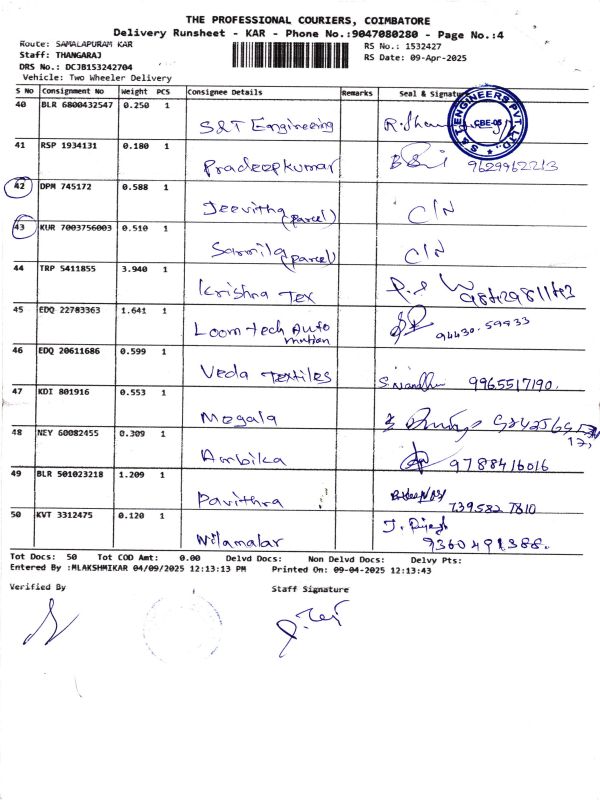 THE PROFESSIONAL COURIERS, COIMBATORE
Delivery Runsheet - KAR - Phone No.:9047080280 - Page No.:4
Route: SAMALAPURAM KAR
RS No.: 1532427
Staff: THANGARAJ
RS Date: 09-Apr-2025
DRS No.: DCJB153242704
Vehicle: Two Wheeler Delivery
S No Consignment No Weight PCS Consignee Details Remarks Seal & Signature
40 BLR 6800432547 0.250 1
S&T Engineering
S & T ENGINEERS PVT. LTD. CBE-05
41 RSP 1934131 0.180 1
Pradeepkumar 9629962213
42 DPM 745172 0.588 1
Jeevitha (parcel) C/N
43 KUR 7003756003 0.510 1
Sarmila (parcel) C/N
44 TRP 5411855 3.940 1
Krishna Tex
45 EDQ 22783363 1.641 1
Loomtech Auto
mution 94430.59933
46 EDQ 20611686 0.599 1
Veda Textiles S. Nandhu 9965517190.
47 KDI 801916 0.553 1
Megala
48 NEY 60082455 0.309 1
Ambika 9788416016
49 BLR 501023218 1.209 1
Pavithra 739582 7810
50 KVT 3312475 0.120 1
Nilamalar 9360491388.
Tot Docs: 50 Tot COD Amt: 0.00 Delvd Docs: Non Delvd Docs: Delvy Pts:
Entered By :MLAKSHMIKAR 04/09/2025 12:13:13 PM Printed On: 09-04-2025 12:13:43
Verified By Staff Signature